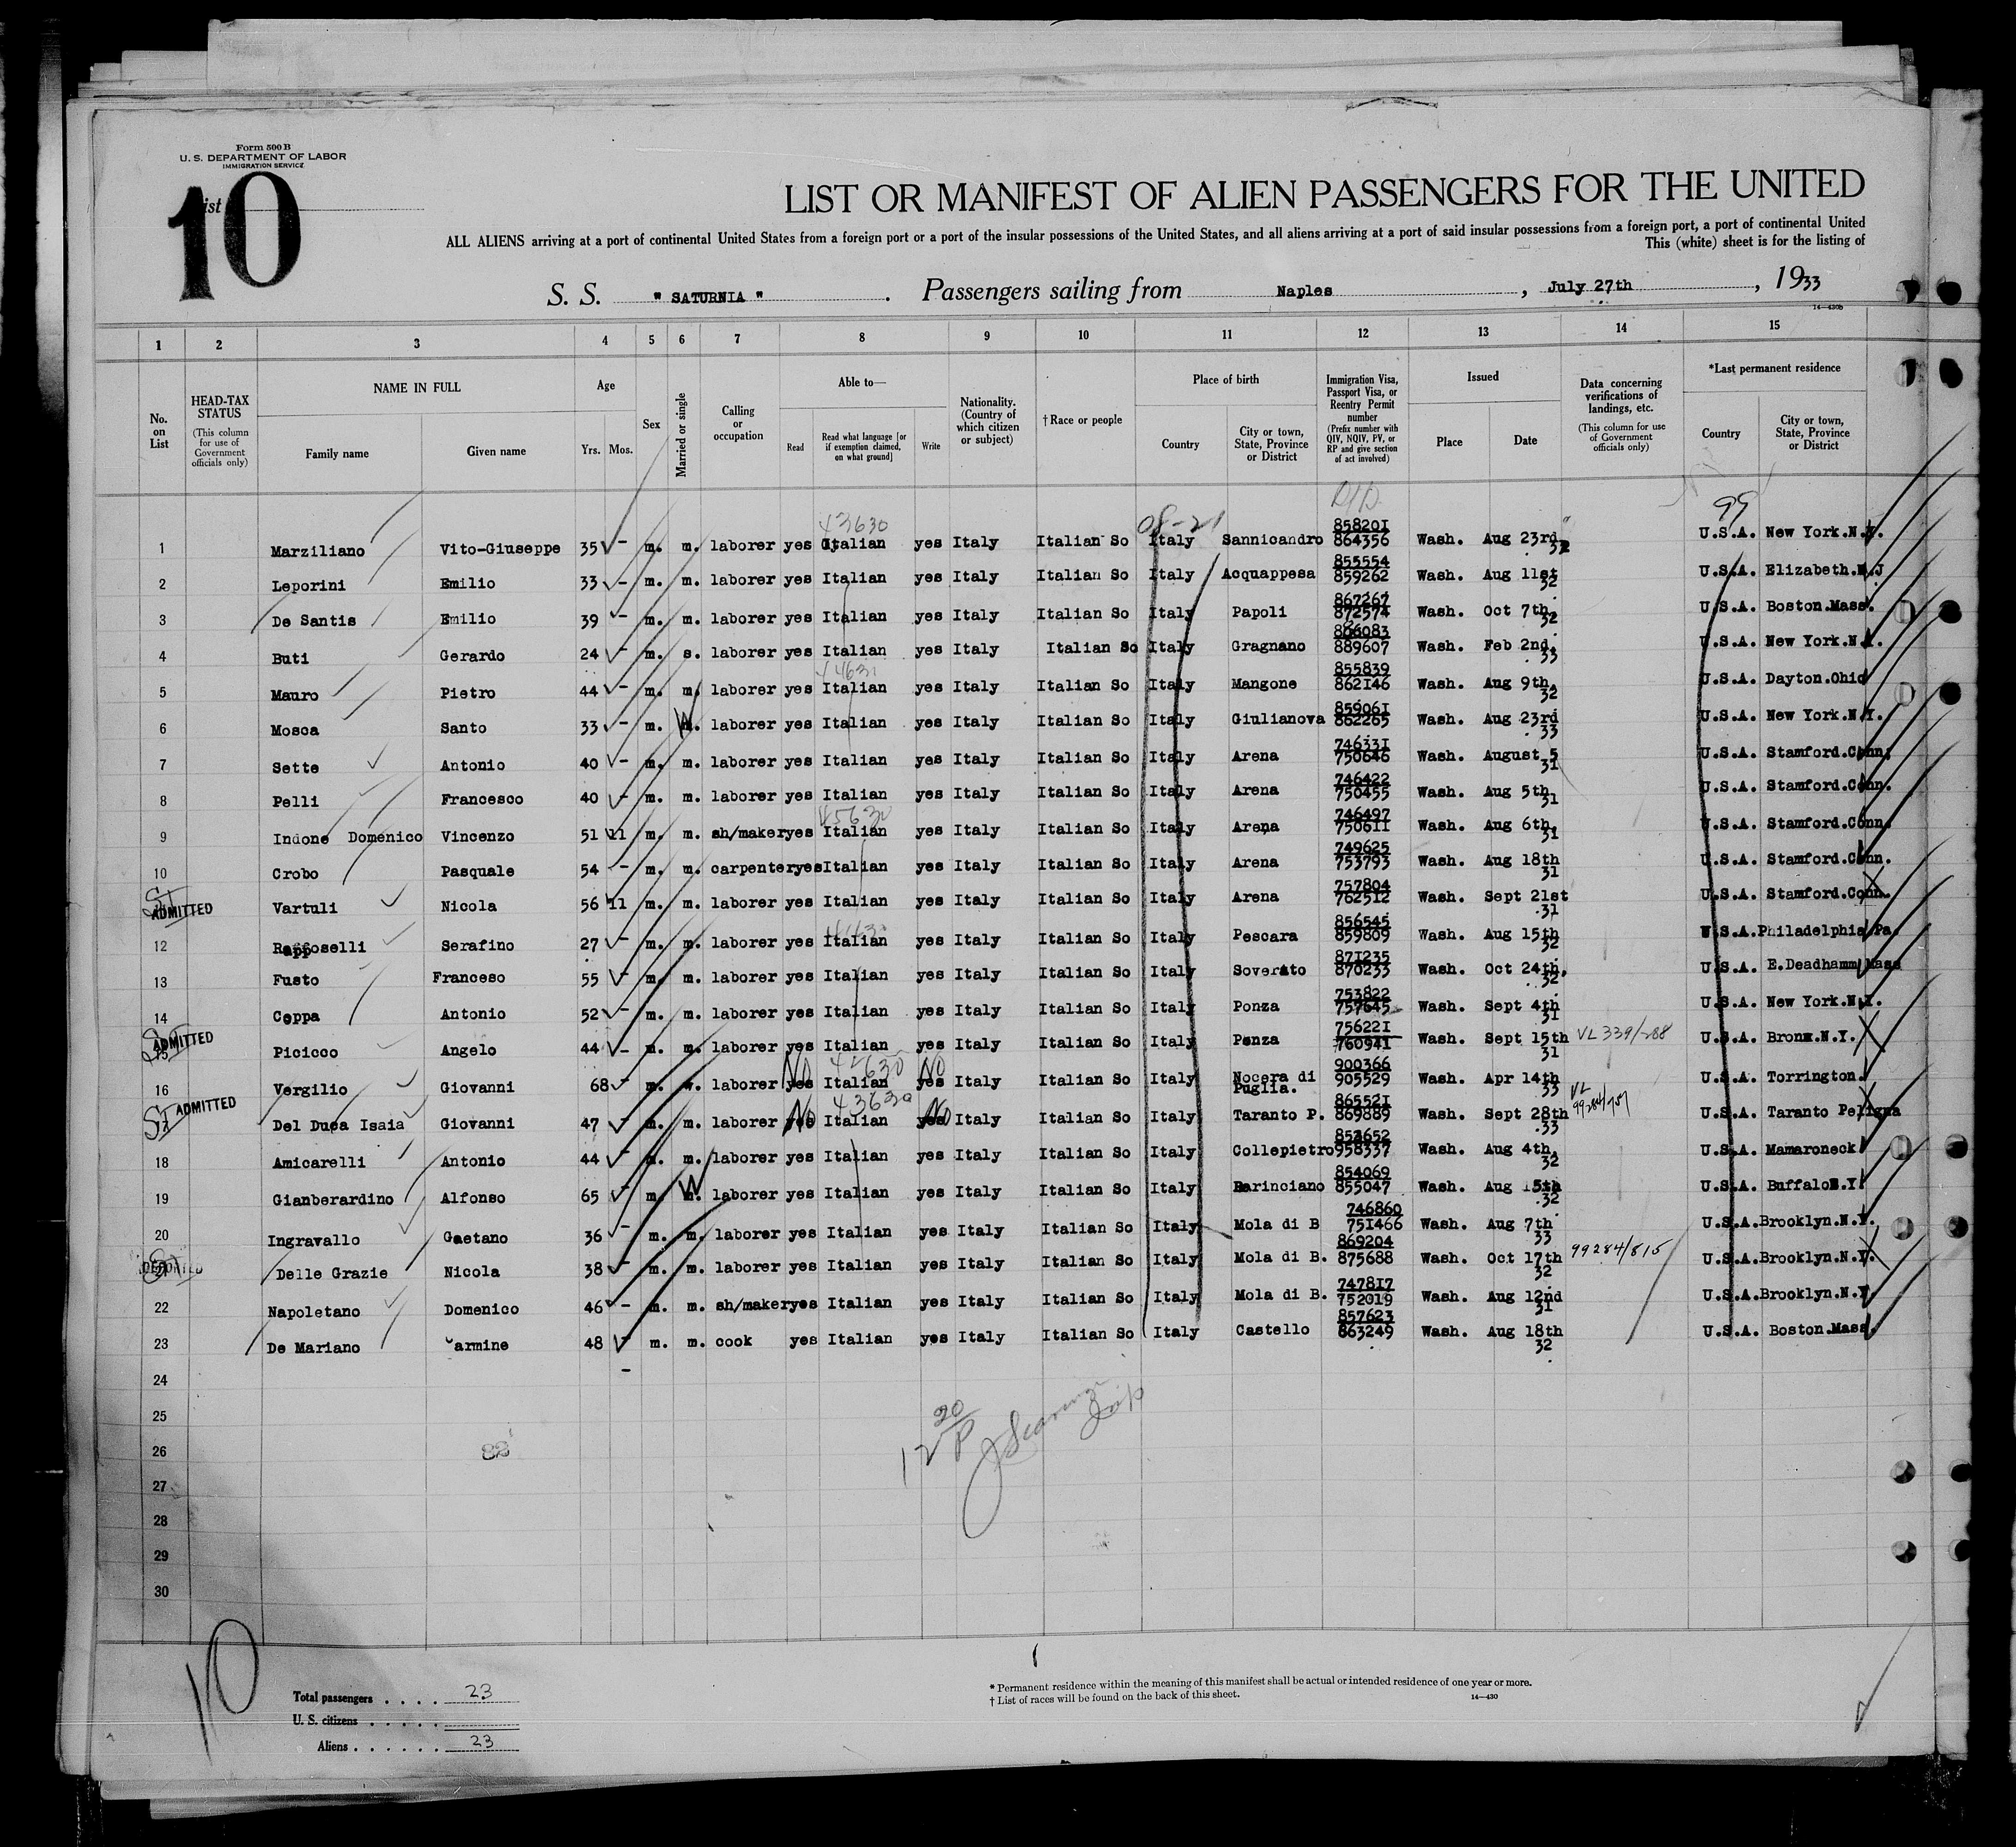 Form 500 B
U. S. DEPARTMENT OF LABOR
IMMIGRATION SERVICE
10
LIST OR MANIFEST OF ALIEN PASSENGERS FOR THE UNITED
ALL ALIENS arriving at a port of continental United States from a foreign port or a port of the insular possessions of the United States, and all aliens arriving at a port of said insular possessions from a foreign port, a port of continental United
This (white) sheet is for the listing of
S. S. " SATURNIA " . Passengers sailing from Naples , July 27th , 1933
14—430b
1 2 3 4 5 6 7 8 9 10 11 12 13 14 15
No. on List
HEAD-TAX STATUS (This column for use of Government officials only)
NAME IN FULL Family name Given name
Age Yrs. Mos.
Sex
Married or single
Calling or occupation
Able to— Read Read what language [or if exemption claimed, on what ground] Write
Nationality. (Country of which citizen or subject)
† Race or people
Place of birth Country City or town, State, Province or District
Immigration Visa, Passport Visa, or Reentry Permit number (Prefix number with QIV, NQIV, PV, or RP and give section of act involved)
Issued Place Date
Data concerning verifications of landings, etc. (This column for use of Government officials only)
*Last permanent residence Country City or town, State, Province or District
43630 08-21 99
1 Marziliano Vito-Giuseppe 35 - m. m. laborer yes Italian yes Italy Italian So Italy Sannicandro 858201 864356 Wash. Aug 23rd 32 U.S.A. New York.N.Y.
2 Leporini Emilio 33 - m. m. laborer yes Italian yes Italy Italian So Italy Acquappesa 855554 859262 Wash. Aug 11st 32 U.S.A. Elizabeth.N.J
3 De Santis Emilio 39 - m. m. laborer yes Italian yes Italy Italian So Italy Papoli 867267 872574 Wash. Oct 7th. 32 U.S.A. Boston.Mass.
4 Buti Gerardo 24 - m. s. laborer yes Italian yes Italy Italian So Italy Gragnano 886083 889607 Wash. Feb 2nd. 33 U.S.A. New York.N.Y.
5 Mauro Pietro 44 - m. m. laborer yes Italian yes Italy Italian So Italy Mangone 855839 862146 Wash. Aug 9th. 32 U.S.A. Dayton.Ohio
6 Mosca Santo 33 - m. W laborer yes Italian yes Italy Italian So Italy Giulianova 859061 862265 Wash. Aug 23rd 33 U.S.A. New York.N.Y.
7 Sette Antonio 40 - m. m. laborer yes Italian yes Italy Italian So Italy Arena 746331 750646 Wash. August 5 31 U.S.A. Stamford.Conn.
8 Pelli Francesco 40 - m. m. laborer yes Italian yes Italy Italian So Italy Arena 746422 750455 Wash. Aug 5th. 31 U.S.A. Stamford.Conn.
9 Indone Domenico Vincenzo 51 11 m. m. sh/maker yes Italian yes Italy Italian So Italy Arena 746497 750611 Wash. Aug 6th. 31 U.S.A. Stamford.Conn.
10 Crobo Pasquale 54 - m. m. carpenter yes Italian yes Italy Italian So Italy Arena 749625 753793 Wash. Aug 18th 31 U.S.A. Stamford.Conn.
ADMITTED Vartuli Nicola 56 11 m. m. laborer yes Italian yes Italy Italian So Italy Arena 757804 762512 Wash. Sept 21st 31 U.S.A. Stamford.Conn.
12 Rapposelli Serafino 27 - m. m. laborer yes Italian yes Italy Italian So Italy Pescara 856545 859809 Wash. Aug 15th 32 U.S.A. Philadelphia Pa.
13 Fusto Franceso 55 - m. m. laborer yes Italian yes Italy Italian So Italy Soverato 871235 870233 Wash. Oct 24th. 32 U.S.A. E.Deadhamm Mass
14 Coppa Antonio 52 - m. m. laborer yes Italian yes Italy Italian So Italy Ponza 753822 757645 Wash. Sept 4th 31 U.S.A. New York.N.Y.
ADMITTED 15 Picicco Angelo 44 - m. m. laborer yes Italian yes Italy Italian So Italy Ponza 756221 760941 Wash. Sept 15th 31 VL 339/288 U.S.A. Bronx.N.Y.
16 Vergilio Giovanni 68 - m. w. laborer yes No Italian 42630 yes No Italy Italian So Italy Nocera di Puglia. 900366 905529 Wash. Apr 14th 33 U.S.A. Torrington.
ADMITTED 17 Del Duca Isaia Giovanni 47 - m. m. laborer yes No Italian 43630 yes No Italy Italian So Italy Taranto P. 865521 869889 Wash. Sept 28th 33 VL U.S.A. Taranto Peligna
18 Amicarelli Antonio 44 - m. m. laborer yes Italian yes Italy Italian So Italy Collepietro 953652 958337 Wash. Aug 4th. 32 U.S.A. Mamaroneck
19 Gianberardino Alfonso 65 - m. W laborer yes Italian yes Italy Italian So Italy Barinciano 854069 855047 Wash. Aug 15th 32 U.S.A. Buffalo N.Y
20 Ingravallo Gaetano 36 - m. m. laborer yes Italian yes Italy Italian So Italy Mola di B 746860 751466 Wash. Aug 7th 33 U.S.A. Brooklyn.N.Y.
21 Delle Grazie Nicola 38 - m. m. laborer yes Italian yes Italy Italian So Italy Mola di B. 869204 875688 Wash. Oct 17th 32 99284/815 U.S.A. Brooklyn.N.Y.
22 Napoletano Domenico 46 - m. m. sh/maker yes Italian yes Italy Italian So Italy Mola di B. 747817 752019 Wash. Aug 12nd 31 U.S.A. Brooklyn.N.Y.
23 De Mariano armine 48 - m. m. cook yes Italian yes Italy Italian So Italy Castello 857623 863249 Wash. Aug 18th 32 U.S.A. Boston.Mass.
24
25
26 82
27
28
29
30
10
Total passengers . . . . 23
U. S. citizens . . . . .
Aliens . . . . . . 23
* Permanent residence within the meaning of this manifest shall be actual or intended residence of one year or more.
† List of races will be found on the back of this sheet.
14—430